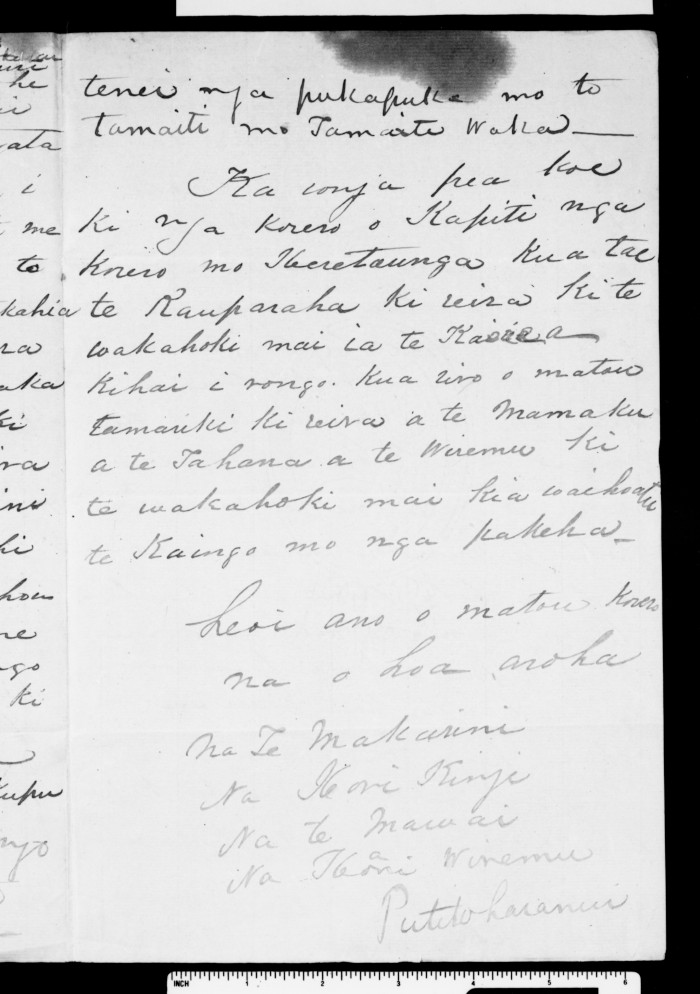 tenei nga pukapuka mo to
tamaiti mo Tamaiti Waka
Ka ronga pea koe
ki nga korero o Kapiti nga
korero mo Heretaunga kua tae
te Rauparaha ki reira ki te
wakahoki mai ia te
kihai i rongo. kua riro o matou
tamariki ki reira a te Mamaku
a te Tahana a te Wiremu ki
te wakahoki mai kia waihoatu
te Kaingo mo nga pakeha
heoi ano o matou korero
na o hoa aroha
Na Te Makarini
Na Hori Kingi
Na te Mawai
Na Hori Wiremu
ata
i
me
to
kahia
ra
aka
ki
ini
hi
ki
kupu